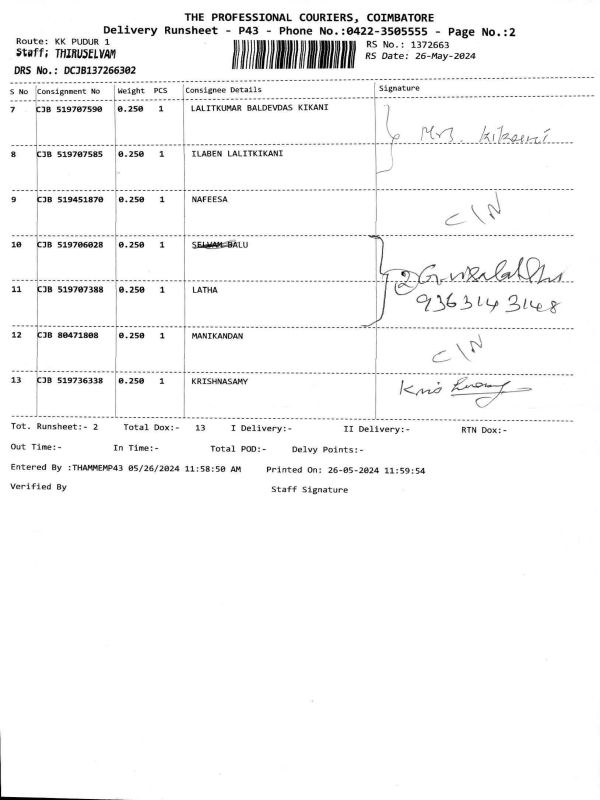 THE PROFESSIONAL COURIERS, COIMBATORE
Delivery Runsheet - P43 - Phone No.:0422-3505555 - Page No.:2
Route: KK PUDUR 1 RS No.: 1372663
Staff; THIRUSELVAM RS Date: 26-May-2024
DRS No.: DCJB137266302
S No Consignment No Weight PCS Consignee Details Signature
7 CJB 519707590 0.250 1 LALITKUMAR BALDEVDAS KIKANI
Mrs Kikani
8 CJB 519707585 0.250 1 ILABEN LALITKIKANI
9 CJB 519451870 0.250 1 NAFEESA C/N
10 CJB 519706028 0.250 1 SELVAM BALU
11 CJB 519707388 0.250 1 LATHA 9363143148
12 CJB 80471808 0.250 1 MANIKANDAN C/N
13 CJB 519736338 0.250 1 KRISHNASAMY
Tot. Runsheet:- 2 Total Dox:- 13 I Delivery:- II Delivery:- RTN Dox:-
Out Time:- In Time:- Total POD:- Delvy Points:-
Entered By :THAMMEMP43 05/26/2024 11:58:50 AM Printed On: 26-05-2024 11:59:54
Verified By Staff Signature